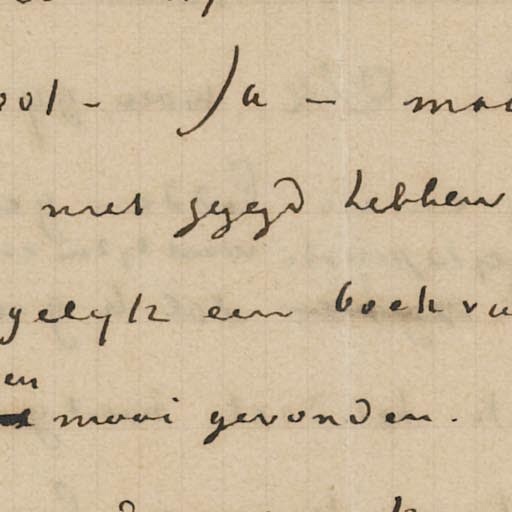 ool - Ja - maa
niet gezegd hebben
gelyk een boek va
en
mooi gevonden.